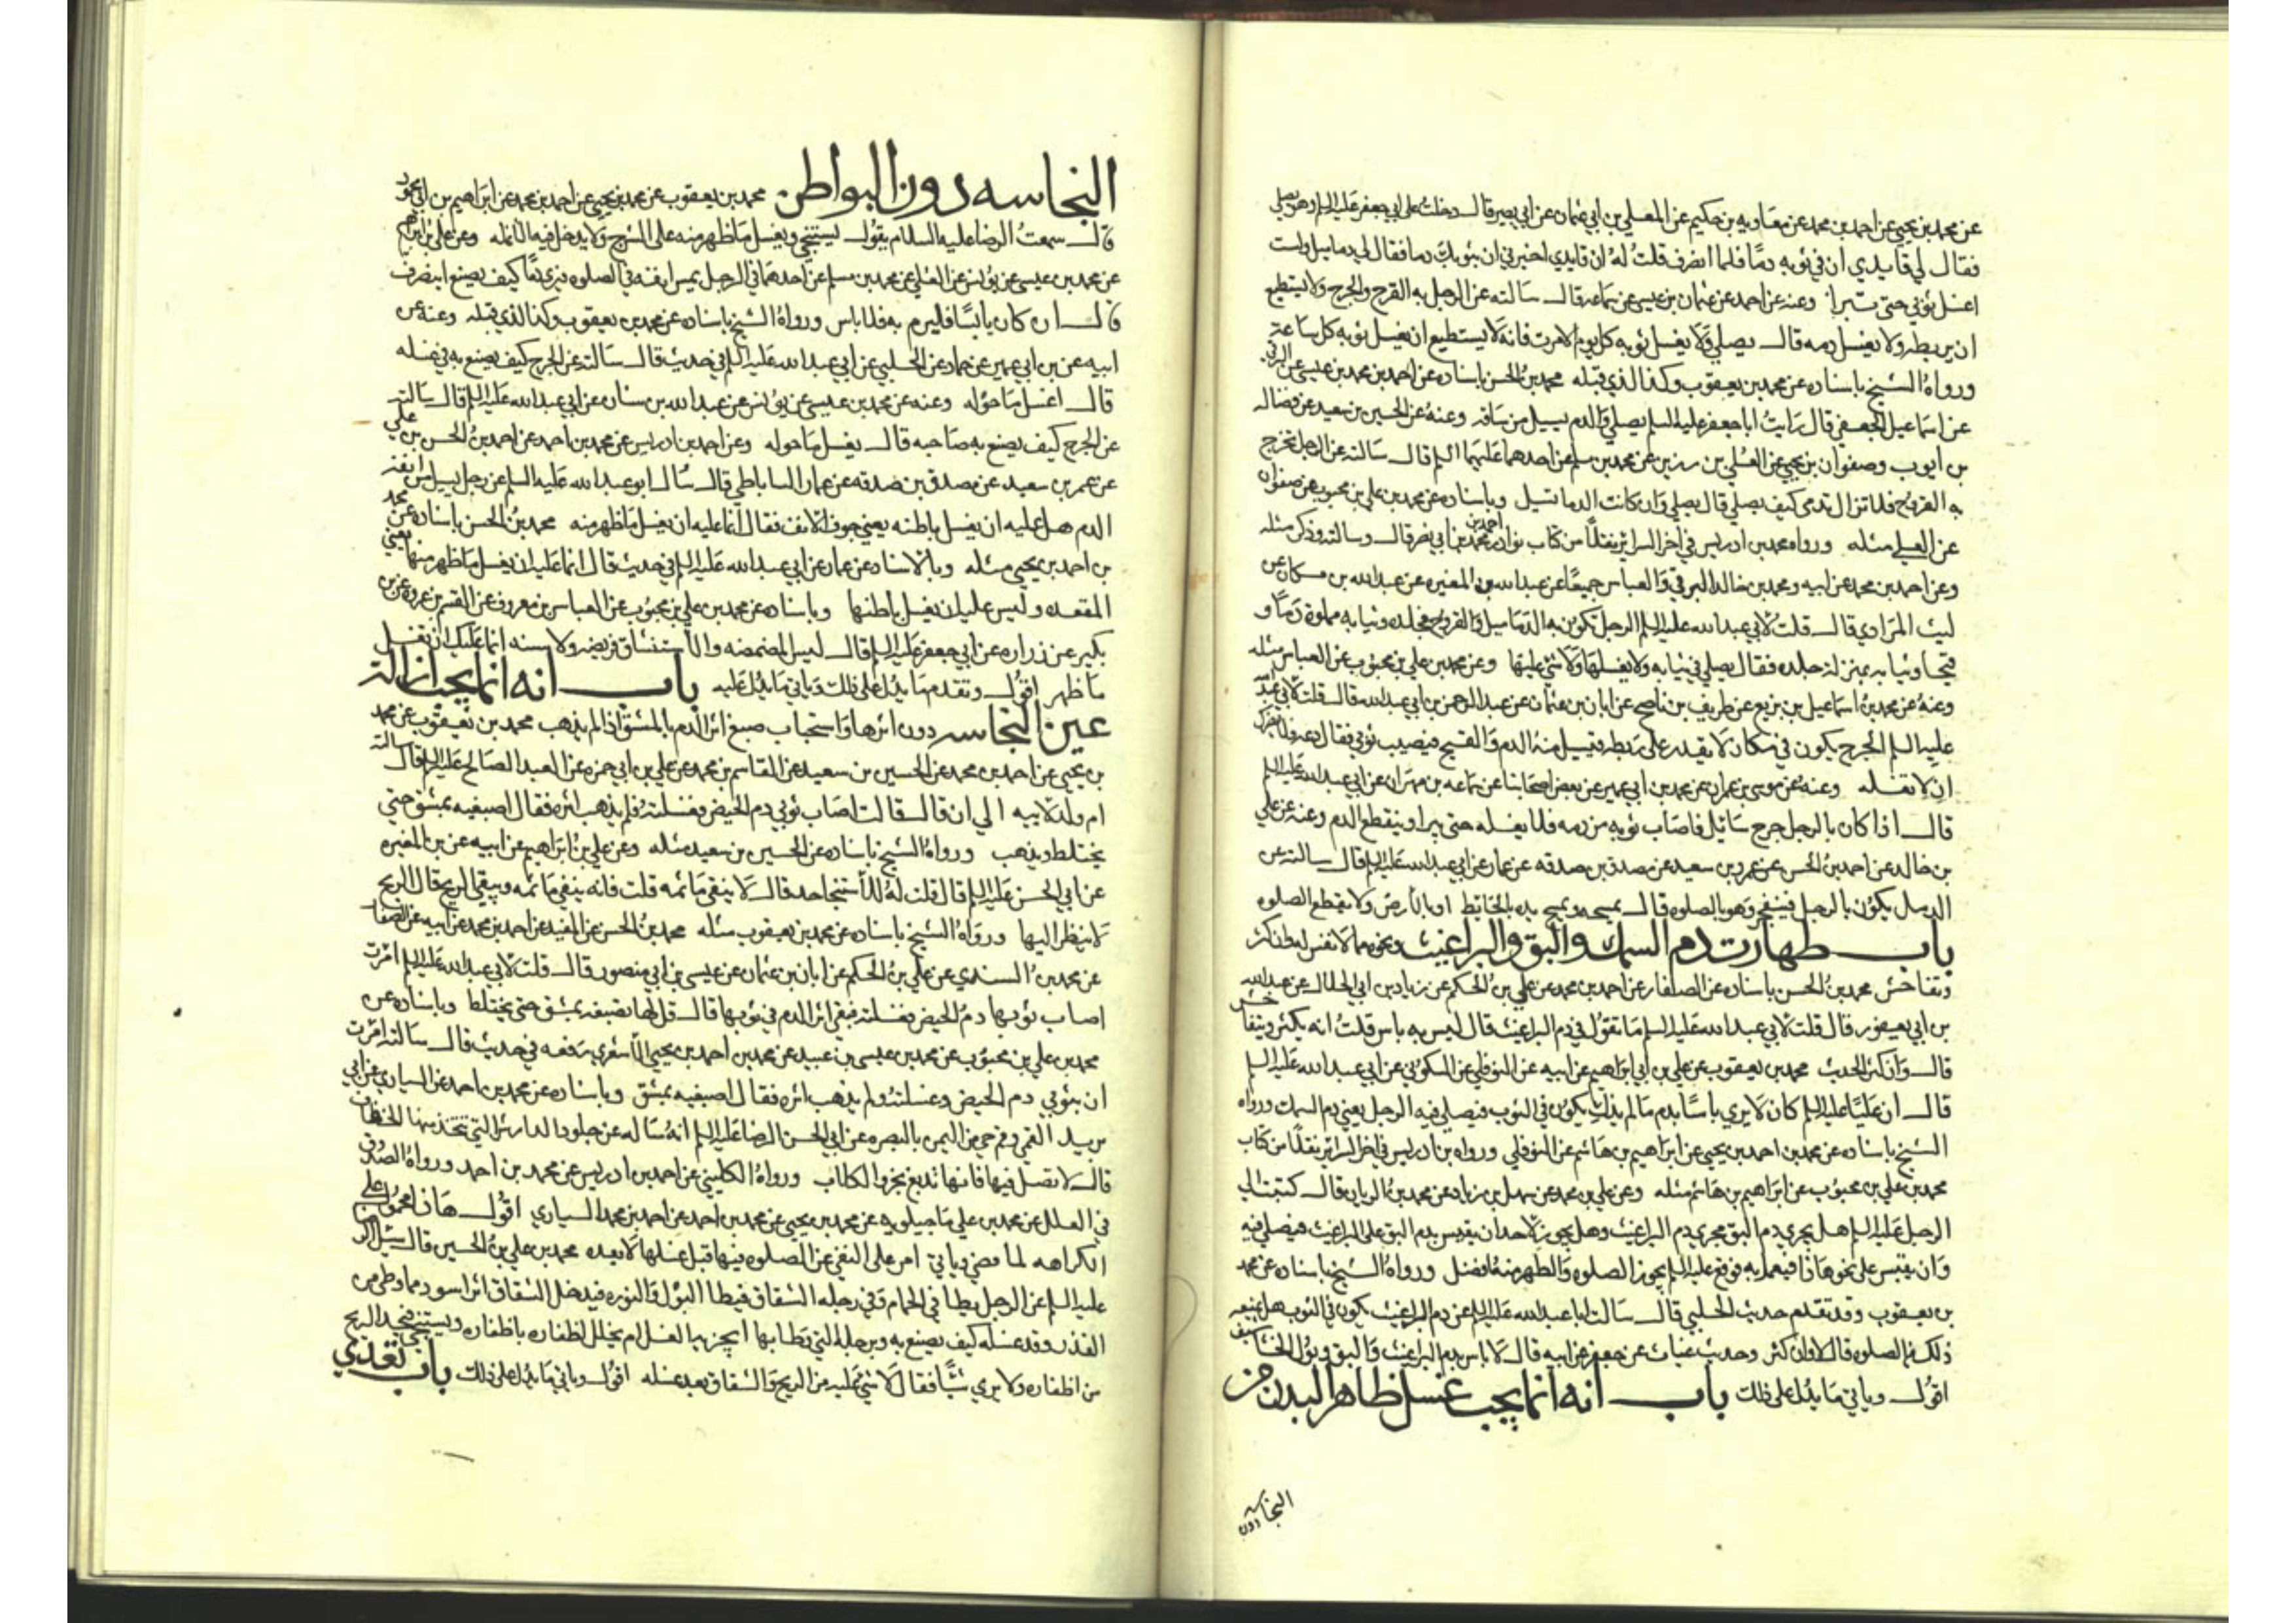 عن محمد بن يحيى عن احمد بن محمد عن معاويه بن حكيم عن المعلي بن ابي عثمان عن ابي بصير قال دخلت على ابي جعفر عليه السلم وهو يصلي
فقال لي قايدي ان في ثوبه دمًا فلما انصرف قلت له ان قايدي اخبرني ان بثوبك دما فقال لي دماميل ولست
اغسل ثوبي حتى تبرا وعنه عن احمد عن عثمان بن عيسى عن سماعه قال سالته عن الرجل به القرح والجرح ولا يستطيع
ان يربطه ولا يغسل دمه قال يصلي ولا يغسل ثوبه كل يوم الا مرت فانه لا يستطيع ان يغسل ثوبه كل ساعة
ورواه الشيخ باسناده عن محمد بن يعقوب وكذا الذي قبله محمد بن الحسن باسناده عن احمد بن محمد بن عيسى عن البرقي
عن اسماعيل الجعفي قال رايت ابا جعفر عليه السلم يصلي والدم يسيل من ساقه وعنه عن الحسين بن سعيد عن فضاله
بن ايوب وصفوان بن يحيى عن العلي بن رزين عن محمد بن مسلم عن احدهما عليهما السلم قال سالته عن الرجل تخرج
به القروح فلا تزال تدمى كيف يصلي قال يصلي وان كانت الدما تسيل وباسناده عن محمد بن علي بن محبوب عن صفوان
عن العلي مثله ورواه محمد بن ادريس في اخر السراير نقلًا من كتاب نوادر احمد بن محمد بن ابي نصر قال وسالته وذكر مثله
وعن احمد بن محمد عن ابيه ومحمد بن خالد البرقي والعباس جميعًا عن عبد الله بن المغيره عن عبد الله بن مسكان عن
ليث المرادي قال قلت لابي عبد الله عليه السلم الرجل تكون به الدماميل والقروح فجلده وثيابه مملوة دمًا و
قيحا وثيابه بمنزلة جلده فقال يصلي في ثيابه ولا يغسلها ولا شي عليه وعن محمد بن علي بن محبوب عن العباس مثله
وعنه عن محمد بن اسماعيل بن بزيع عن ظريف بن ناصح عن ابان بن عثمان عن عبد الرحمن بن ابي عبد الله قال قلت لابي عبد الله
عليه السلم الجرح يكون في مكان لا يقدر على ربطه فيسيل منه الدم والقيح فيصيب ثوبي فقال دعه فلا يضرك
ان لا تغسله وعنه عن موسى بن عمران عن محمد بن ابي عمير عن بعض اصحابنا عن سماعه بن مهران عن ابي عبد الله عليه السلم
قال اذا كان بالرجل جرح سائل فاصاب ثوبه من دمه فلا يغسله حتى يبرا وينقطع الدم وعنه عن علي
بن خالد عن احمد بن الحسن عن عمرو بن سعيد عن مصدق بن صدقه عن عمار عن ابي عبد الله عليه السلم قال سالته عن
الدمل يكون بالرجل فينفجر وهو بالصلوه قال يمسحه ويمسح يده بالحائط او بالارض ولا يقطع الصلوه
باب طهارت دم السمك والبق والبراغيث ونحوه مما لا نفس له وان كثر
وتفاحش محمد بن الحسن باسناده عن الصفار عن احمد بن محمد عن علي بن الحكم عن زياد بن ابي الحلال عن عبد الله
بن ابي يعفور قال قلت لابي عبد الله عليه السلم ما تقول في دم البراغيث قال ليس به باس قلت انه يكثر ويتفاحش
قال وان كثر الحديث محمد بن يعقوب عن علي بن ابي ابراهيم عن ابيه عن النوفلي عن السكوني عن ابي عبد الله عليه السلم
قال ان عليًا عليه السلم كان لا يري باسًا بدم ما لم يذك يكون في الثوب فيصلي فيه الرجل يعني دم السمك ورواه
الشيخ باسناده عن محمد بن احمد بن يحيى عن ابراهيم بن هاشم عن النوفلي ورواه بن ادريس في اخر السراير نقلًا من كتاب
محمد بن علي بن محبوب عن ابراهيم بن هاشم مثله وعن علي بن محمد عن سهل بن زياد عن محمد بن الريان قال كتبت الي
الرجل عليه السلم هل يجري دم البق مجري دم البراغيث وهل يجوز لاحد ان يقيس بدم البق على البراغيث فيصلي فيه
وان يقيس على نحو هاذا فيعمل به فوقع عليه السلم يجوز الصلوه والطهر منه افضل ورواه الشيخ باسناده عن محمد
بن يعقوب وقد تقدم حديث الحلبي قال سالت ابا عبد الله عليه السلم عن دم البراغيث يكون في الثوب هل يمنعه
ذلك من الصلوه قال لا وان كثر وحديث غياث عن جعفر عن ابيه قال لا باس بدم البراغيث والبق وبول الخشاشيف
اقول وياتي ما يدل على ذلك باب انه انما يجب غسل ظاهر البدن من
النجاسه دون
النجاسه دون البواطن محمد بن يعقوب عن محمد بن يحيى عن احمد بن محمد عن ابراهيم بن ابي محمود
قال سمعت الرضا عليه السلام يقول يستنجي ويغسل ما ظهر منه على الشرج ولا يدخل فيه الانمله وعن علي بن ابراهيم
عن محمد بن عيسى عن يونس عن العلي عن محمد بن مسلم عن احدهما في الرجل يمس انفه في الصلوه فيري دمًا كيف يصنع اينصرف
قال ان كان يابسًا فليرم به فلا باس ورواه الشيخ باسناده عن محمد بن يعقوب وكذا الذي قبله وعنه عن
ابيه عن بن ابي عمير عن حماد عن الحلبي عن ابي عبد الله عليه السلم في حديث قال سالته عن الجرح كيف يصنع به في غسله
قال اغسل ما حوله وعنه عن محمد بن عيسى عن يونس عن عبد الله بن سنان عن ابي عبد الله عليه السلم قال سالته
عن الجرح كيف يصنع به صاحبه قال يغسل ما حوله وعن احمد بن ادريس عن محمد بن احمد عن احمد بن الحسن بن علي
عن عمر بن سعيد عن مصدق بن صدقه عن عمار الساباطي قال سال ابو عبد الله عليه السلم عن رجل يسيل من انفه
الدم هل عليه ان يغسل باطنه يعني جوف الانف فقال انما عليه ان يغسل ما ظهر منه محمد بن الحسن باسناده عن محمد
بن احمد بن يحيى مثله وبالاسناد عن عمار عن ابي عبد الله عليه السلم في حديث قال انما عليه ان يغسل ما ظهر منها يعني
المقعده وليس عليه ان يغسل باطنها وباسناده عن محمد بن علي بن محبوب عن العباس بن معروف عن القسم بن عروه عن بن
بكير عن زراره عن ابي جعفر عليه السلم قال ليس المضمضه والاستنشاق فريضه ولا سنه انما عليك ان تغسل
ما ظهر اقول وتقدم ما يدل على ذلك وياتي ما يدل عليه باب انه انما يجب ازالة
عين النجاسه دون اثرها واستحباب صبغ اثر الدم بالمشق اذا لم يذهب محمد بن يعقوب عن محمد
بن يحيى عن احمد بن محمد عن الحسين بن سعيد عن القاسم بن محمد عن علي بن ابي حمزه عن العبد الصالح عليه السلم قال سالته
ام ولد لابيه الي ان قال قالت اصاب ثوبي دم الحيض فغسلته فلم يذهب اثره فقال اصبغيه بمشق حتي
يختلط ويذهب ورواه الشيخ باسناده عن الحسين بن سعيد مثله وعن علي بن ابراهيم عن ابيه عن بن المغيره
عن ابي الحسن عليه السلم قال قلت له للاستنجا حد قال لا ينقي ما ثمه قلت فانه ينقي ما ثمه ويبقي الريح قال الريح
لا ينظر اليها ورواه الشيخ باسناده عن محمد بن يعقوب مثله محمد بن الحسن عن المفيد عن احمد بن محمد عن ابيه عن الصفار
عن محمد بن السندي عن علي بن الحكم عن ابان بن عثمان عن عيسى بن ابي منصور قال قلت لابي عبد الله عليه السلم امرت
اصاب ثوبها دم الحيض فغسلته فبقي اثر الدم في ثوبها قال قل لها تصبغه بمشق حتى يختلط وباسناده عن
محمد بن علي بن محبوب عن محمد بن عيسى بن عبيد عن محمد بن احمد بن يحيى الاشعري رفعه في حديث قال سالته امرت
ان بثوبي دم الحيض وغسلته ولم يذهب اثره فقال اصبغيه بمشق وباسناده عن محمد بن احمد عن السياري عن ابي
يزيد القمي وقم حي من اليمن بالبصره عن ابي الحسن الرضا عليه السلم انه ساله عن جلود الدارش التي تتخذ منها الخفاف
قال لا تصل فيها فانها تدبغ بخرو الكلاب ورواه الكليني عن احمد بن ادريس عن محمد بن احمد ورواه الصدوق
في العلل عن محمد بن علي ماجيلويه عن محمد بن يحيى عن محمد بن احمد عن احمد بن محمد السياري اقول هاذا محمول على
الكراهه لما مضي وياتي امر على النهي عن الصلوه فيها قبل غسلها لا بعده محمد بن علي بن الحسين قال سئل الرضا
عليه السلم عن الرجل يطا في الحمام وفي رجله الشقاق فيطا البول والنوره فيدخل الشقاق اثر اسود مما وطي من
القذر وقد غسله كيف يصنع به وبرجله التي وطا بها ايجزيه الغسل ام يخلل اظفاره باظفاره ويستنجي فيجد الريح
من اظفاره ولا يري شيًا فقال لا شي عليه من الريح والشقاق بعد غسله اقول وياتي ما يدل على ذلك باب تعدي